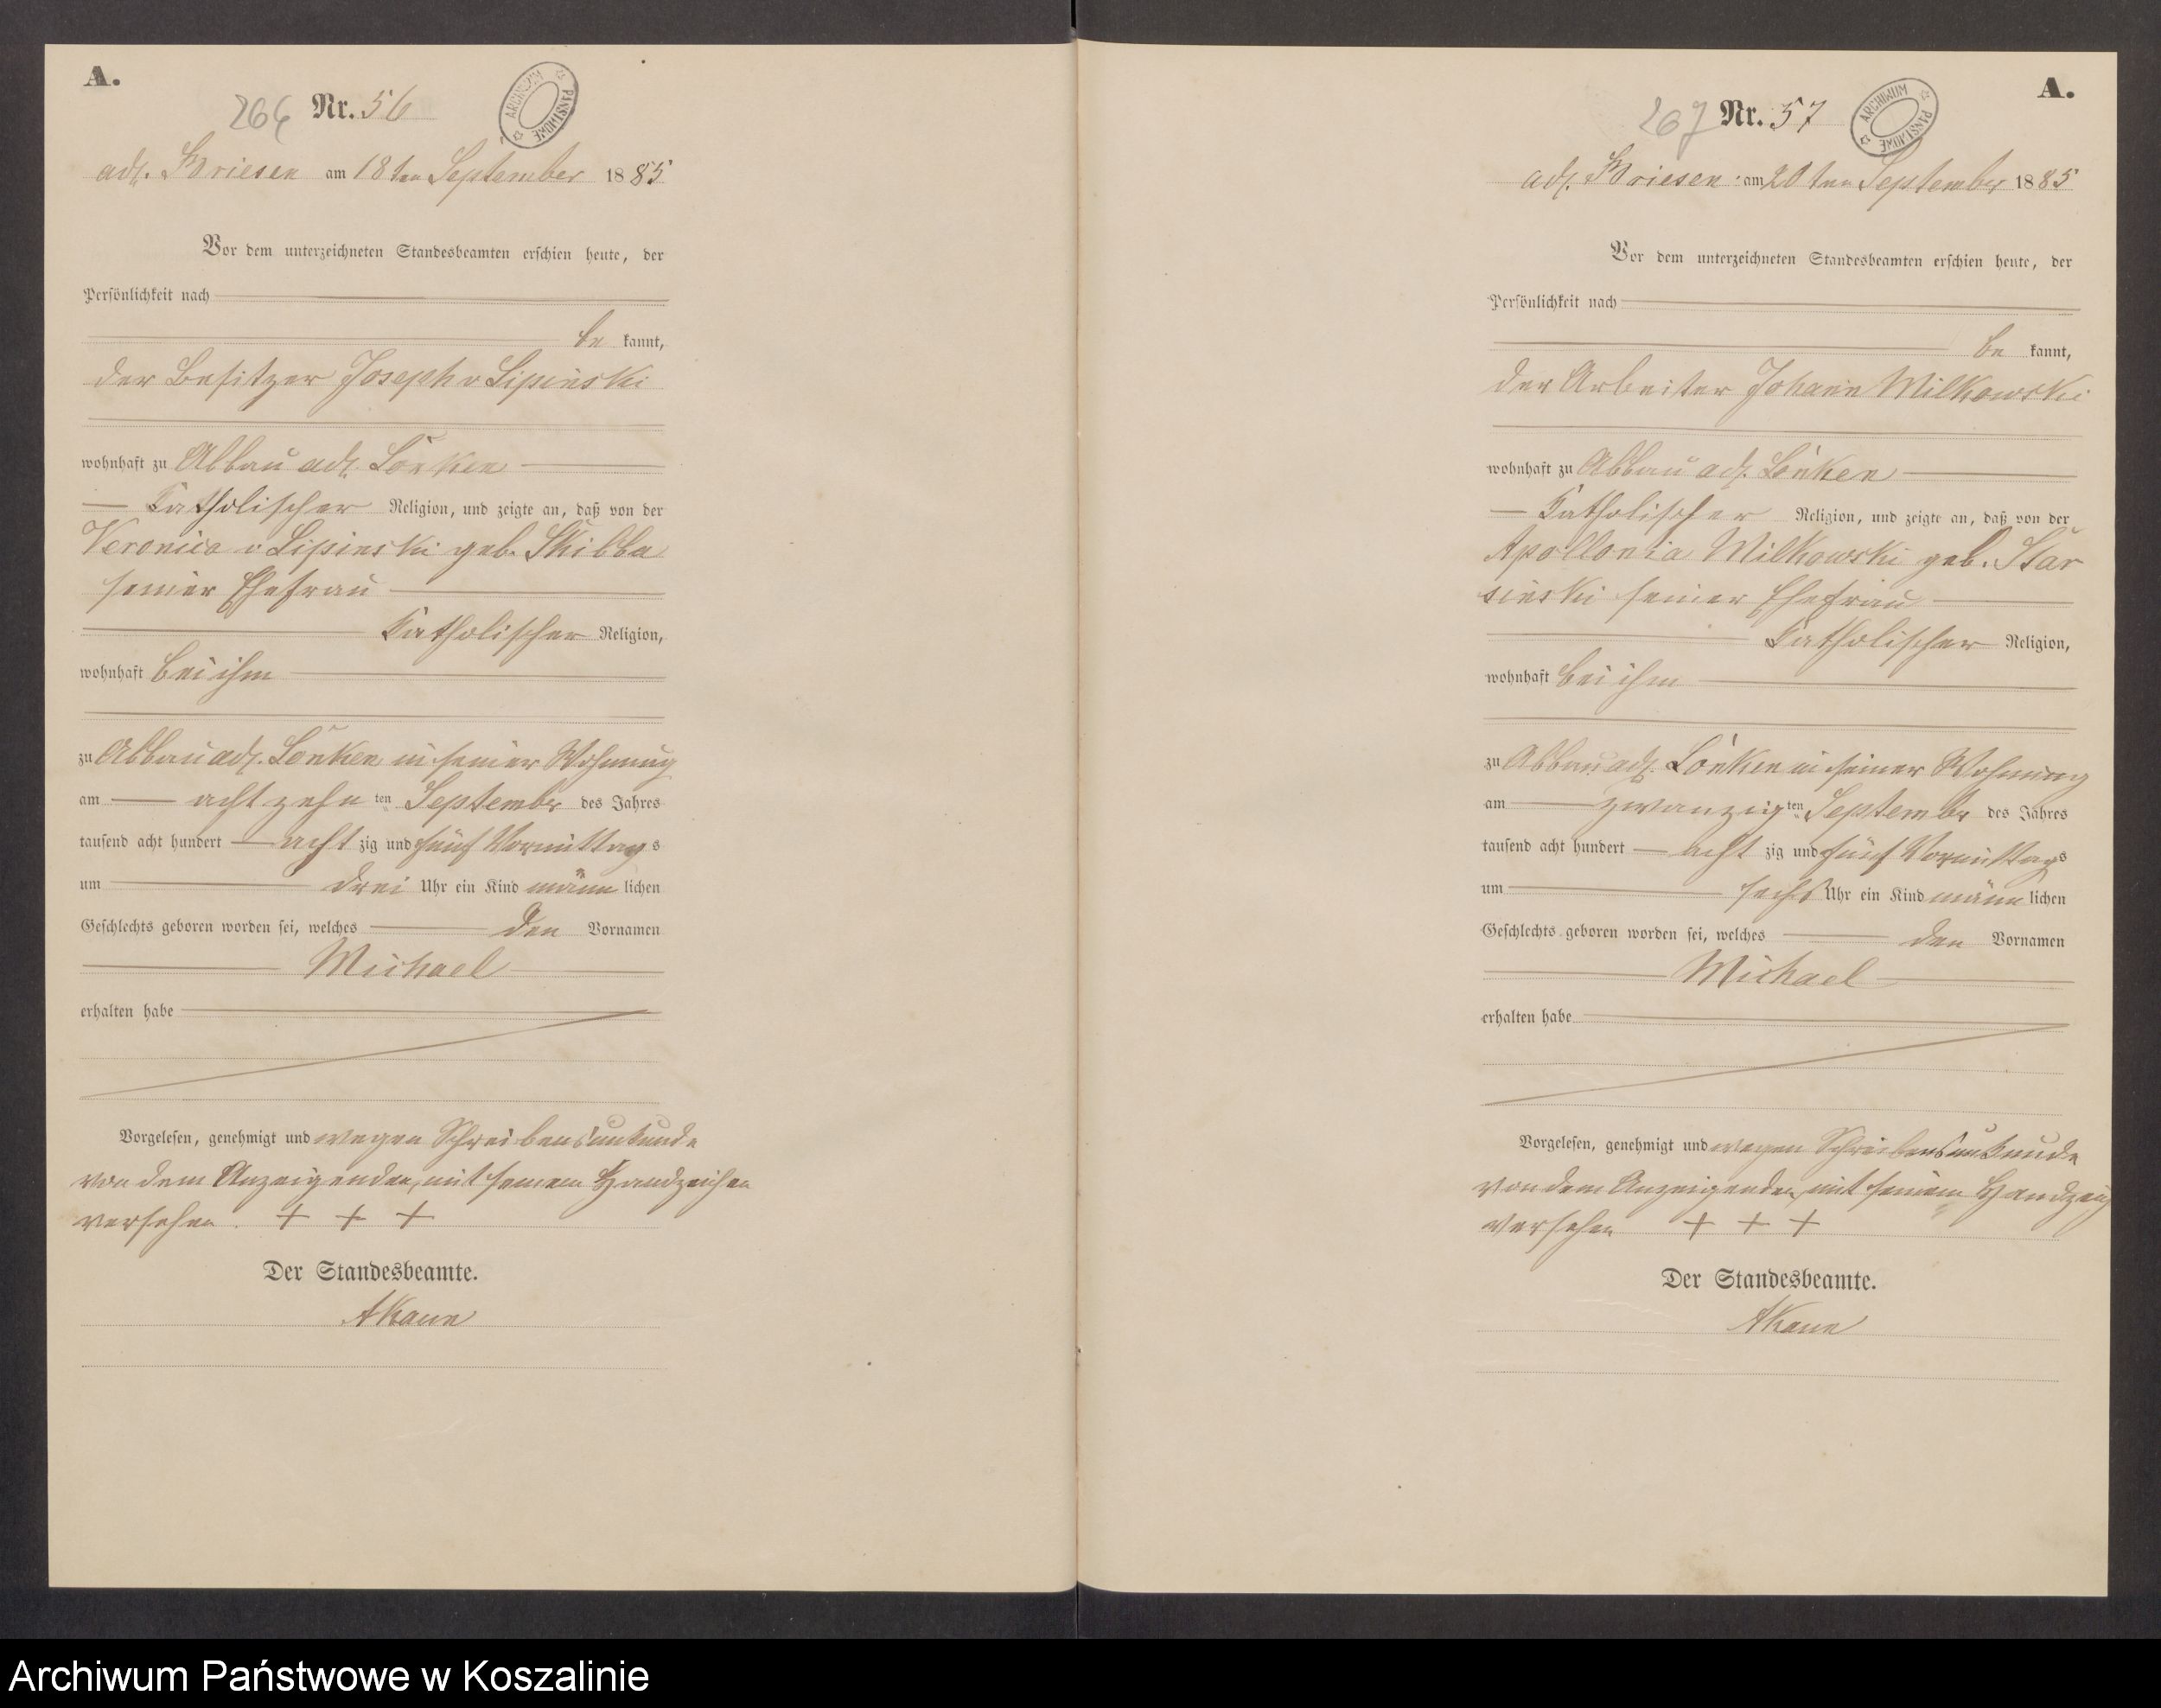 A.
266 Nr. 56
ARCHIWUM PAŃSTWOWE
adl. Briesen am 18ten September 1885
Vor dem unterzeichneten Standesbeamten erschien heute, der
Persönlichkeit nach
be kannt,
der Besitzer Joseph v Lipinski
wohnhaft zu Abbau adl. Lonken
Katholischer Religion, und zeigte an, daß von der
Veronica v Lipinski geb. Skibba
seiner Ehefrau
Katholischer Religion,
wohnhaft bei ihm
zu Abbau adl. Lonken in seiner Wohnung
am achtzehn ten September des Jahres
tausend acht hundert acht zig und fünf Vormittag s
um drei Uhr ein Kind männ lichen
Geschlechts geboren worden sei, welches den Vornamen
Michael
erhalten habe
Vorgelesen, genehmigt und wegen Schreibensunkunde
von dem Anzeigenden, mit seinem Handzeichen
versehen. + + +
Der Standesbeamte.
AKaun
A.
267 Nr. 57
ARCHIWUM PAŃSTWOWE
adl. Briesen am 20ten September 1885
Vor dem unterzeichneten Standesbeamten erschien heute, der
Persönlichkeit nach
be kannt,
der Arbeiter Johann Milkowski
wohnhaft zu Abbau adl. Lonken
Katholischer Religion, und zeigte an, daß von der
Apollonia Milkowski geb. Star
sinski seiner Ehefrau
Katholischer Religion,
wohnhaft bei ihm
zu Abbau adl. Lonken in seiner Wohnung
am zwanzig ten September des Jahres
tausend acht hundert acht zig und fünf Vormittag s
um sechs Uhr ein Kind männ lichen
Geschlechts geboren worden sei, welches den Vornamen
Michael
erhalten habe
Vorgelesen, genehmigt und wegen Schreibensunkunde
von dem Anzeigenden, mit seinem Handzeich
versehen + + +
Der Standesbeamte.
AKaun
Archiwum Państwowe w Koszalinie